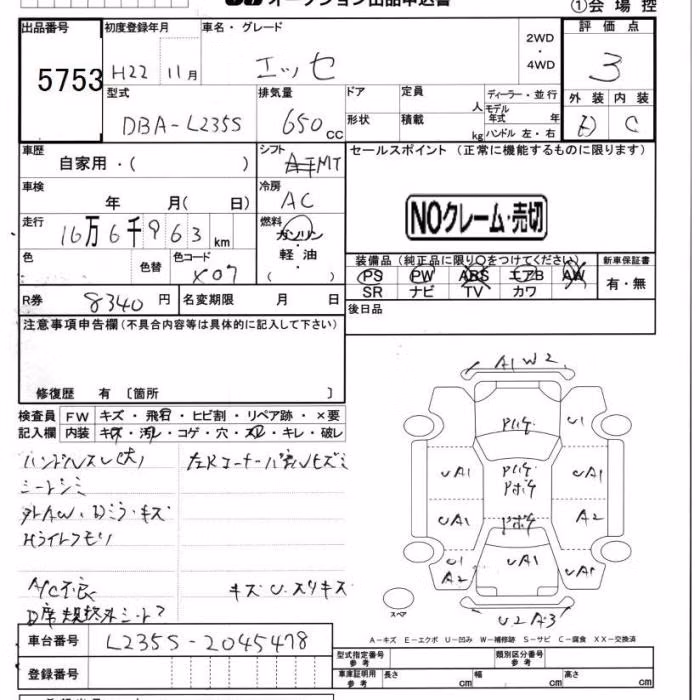 オークション出品申込書
①会場控
出品番号
5753
初度登録年月
H22 11月
車名・グレード
エッセ
2WD
・
4WD
評価点
3
型式
DBA-L235S
排気量
650 cc
ドア
形状
定員
人
積載
kg
ディーラー・並行
モデル
年式 年
ハンドル 左・右
外装 内装
C
車歴
自家用・( )
シフト
MT
セールスポイント (正常に機能するものに限ります)
車検
年 月( 日)
冷房
AC
NOクレーム・売切
走行
16万6千963km
燃料
ガソリン
軽油
( )
色
色替
色コード
X07
装備品 (純正品に限り○をつけてください)
新車保証書
PS PW ABS エアB AW
SR ナビ TV カワ
有・無
R券
8340円
名変期限 月 日
後日品
注意事項申告欄(不具合内容等は具体的に記入して下さい)
修復歴 有 〔箇所 〕
検査員
記入欄
FW キズ・飛石・ヒビ割・リペア跡・×要
内装 キズ・汚れ・コゲ・穴・スレ・キレ・破レ
ハンドルスレ(大)
シートシミ
外AW、Dミラーキズ
Hライトクモリ
A/C不良
D席規格外シート?
キズU.スリキズ
A1 W2
U1
UA1
UA1
UA1
A2
UA1
U1
A2
UA1
U2 A3
スペア
A-キズ E-エクボ U-凹み W-補修跡 S-サビ C-腐食 XX-交換済
車台番号
L235S-2045478
登録番号
型式指定番号
参考
類別区分番号
参考
車庫証明用
参考
長さ cm
幅 cm
高さ cm